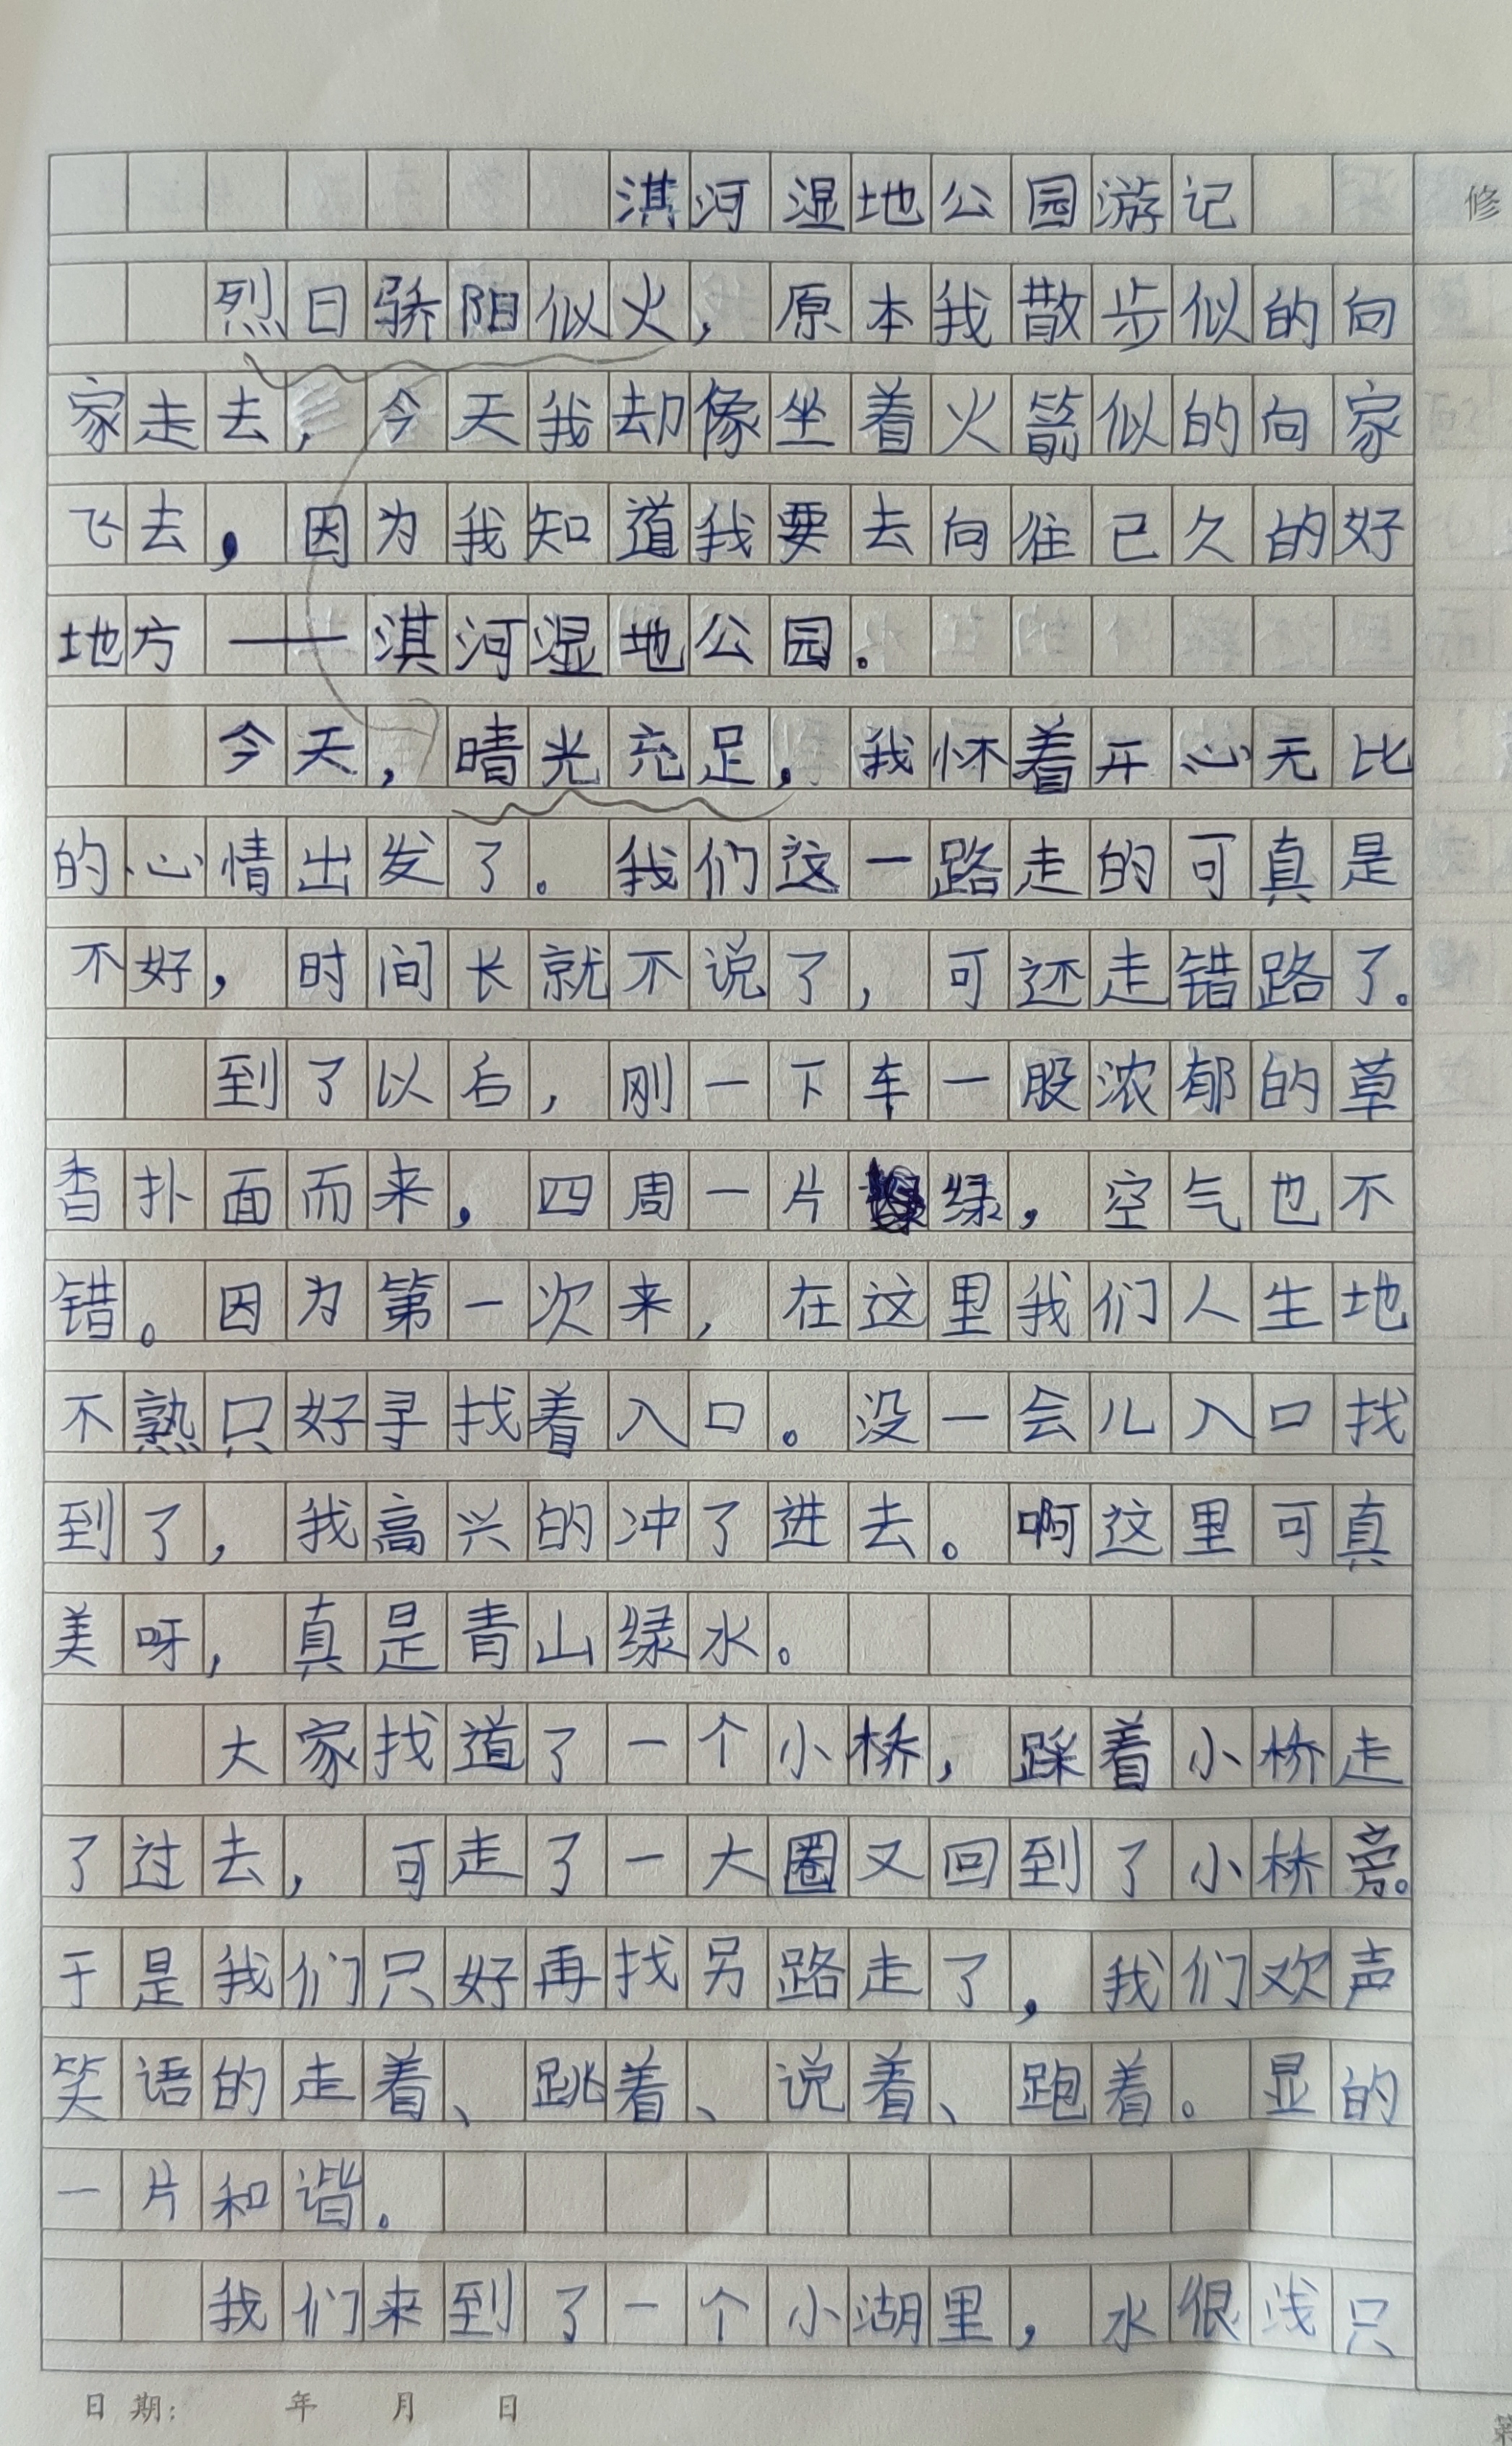 淇河湿地公园游记
修
烈日骄阳似火，原本我散步似的向
家走去，今天我却像坐着火箭似的向家
飞去，因为我知道我要去向往已久的好
地方——淇河湿地公园。
今天，晴光充足，我怀着开心无比
的心情出发了。我们这一路走的可真是
不好，时间长就不说了，可还走错路了。
到了以后，刚一下车一股浓郁的草
香扑面而来，四周一片绿，空气也不
错。因为第一次来，在这里我们人生地
不熟只好寻找着入口。没一会儿入口找
到了，我高兴的冲了进去。啊这里可真
美呀，真是青山绿水。
大家找道了一个小桥，踩着小桥走
了过去，可走了一大圈又回到了小桥旁。
于是我们只好再找另路走了，我们欢声
笑语的走着、跳着、说着、跑着。显的
一片和谐。
我们来到了一个小湖里，水很浅只
日期： 年 月 日
第